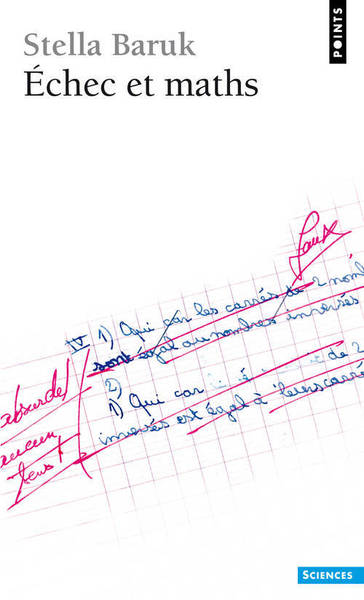 Stella Baruk
Échec et maths
POINTS
Faux
IV 1) Oui car les carrés de 2 nom
sont égal au nombres inversés
2)
1) Oui car
de 2
inversés est égal à leurs carré
absurde!
aucun
sens!
SCIENCES